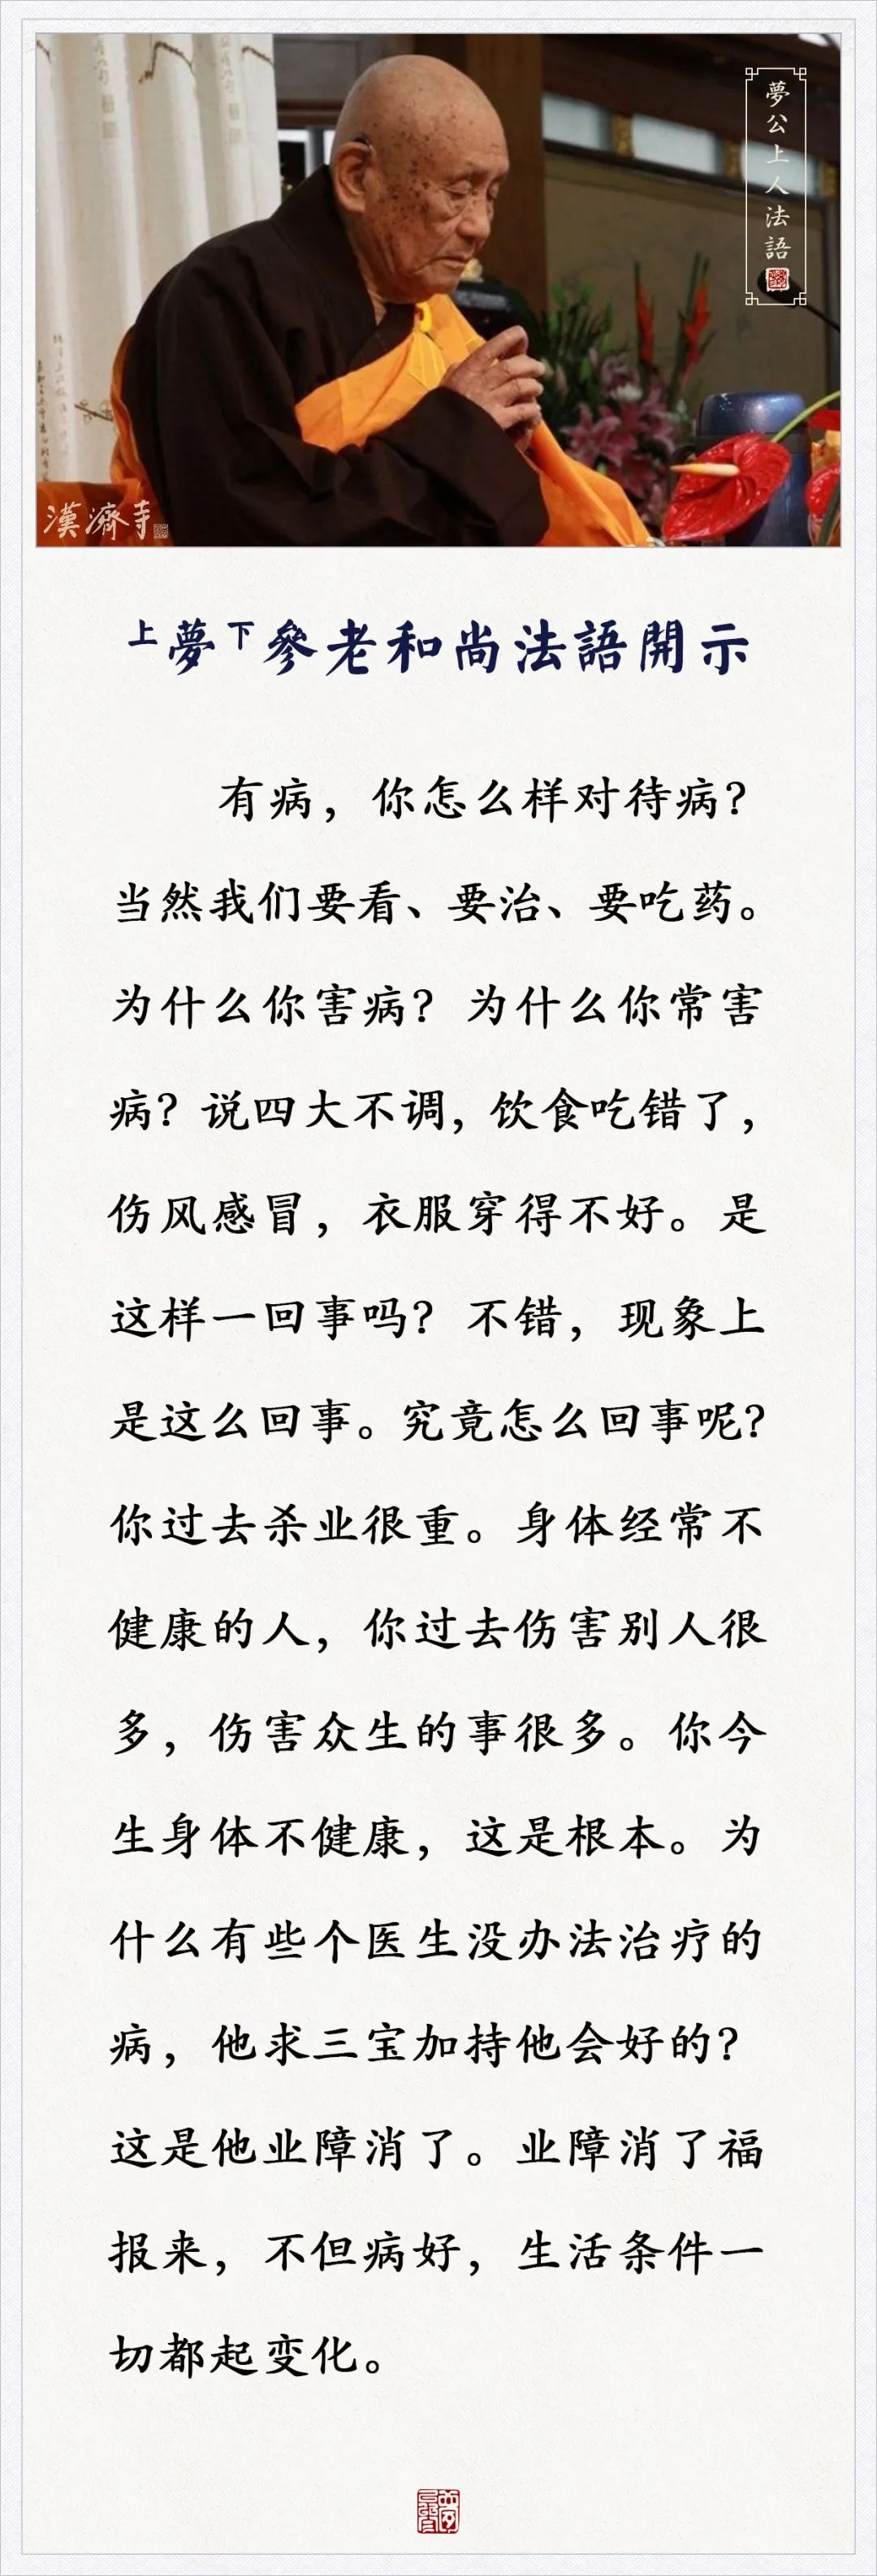 夢公上人法語
漢濟寺
上夢下參老和尚法語開示
有病，你怎么样对待病？
当然我们要看、要治、要吃药。
为什么你害病？为什么你常害
病？说四大不调，饮食吃错了，
伤风感冒，衣服穿得不好。是
这样一回事吗？不错，现象上
是这么回事。究竟怎么回事呢？
你过去杀业很重。身体经常不
健康的人，你过去伤害别人很
多，伤害众生的事很多。你今
生身体不健康，这是根本。为
什么有些个医生没办法治疗的
病，他求三宝加持他会好的？
这是他业障消了。业障消了福
报来，不但病好，生活条件一
切都起变化。